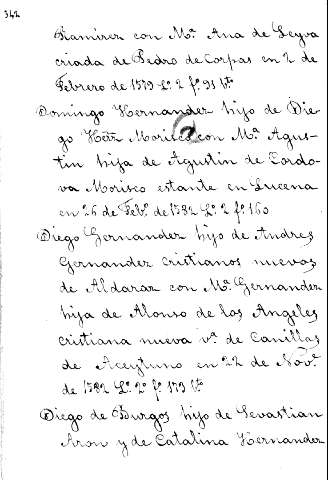 342
Ramirez con Mª Ana de Leyva
criada de Pedro de Corpas en 2 de
Febrero de 1579 Lº 2 fº 93 vto
Domingo Hernandez hijo de Die-
go Hers Morisco con Mª Agus-
tin hija de Agustin de Cordo-
va Morisco estante en Lucena
en 26 de Febº de 1582 Lº 2 fº 160
Diego Gernandez hijo de Andres
Gernandez cristianos nuevos
de Aldaraz con Mª Gernandez
hija de Alonso de los Angeles
cristiana nueva vª de Canillas
de Aceytuno en 22 de Novº
de 1582 Lº 2º fº 179 vto
Diego de Burgos hijo de Sevastian
Aron y de Catalina Hernandez